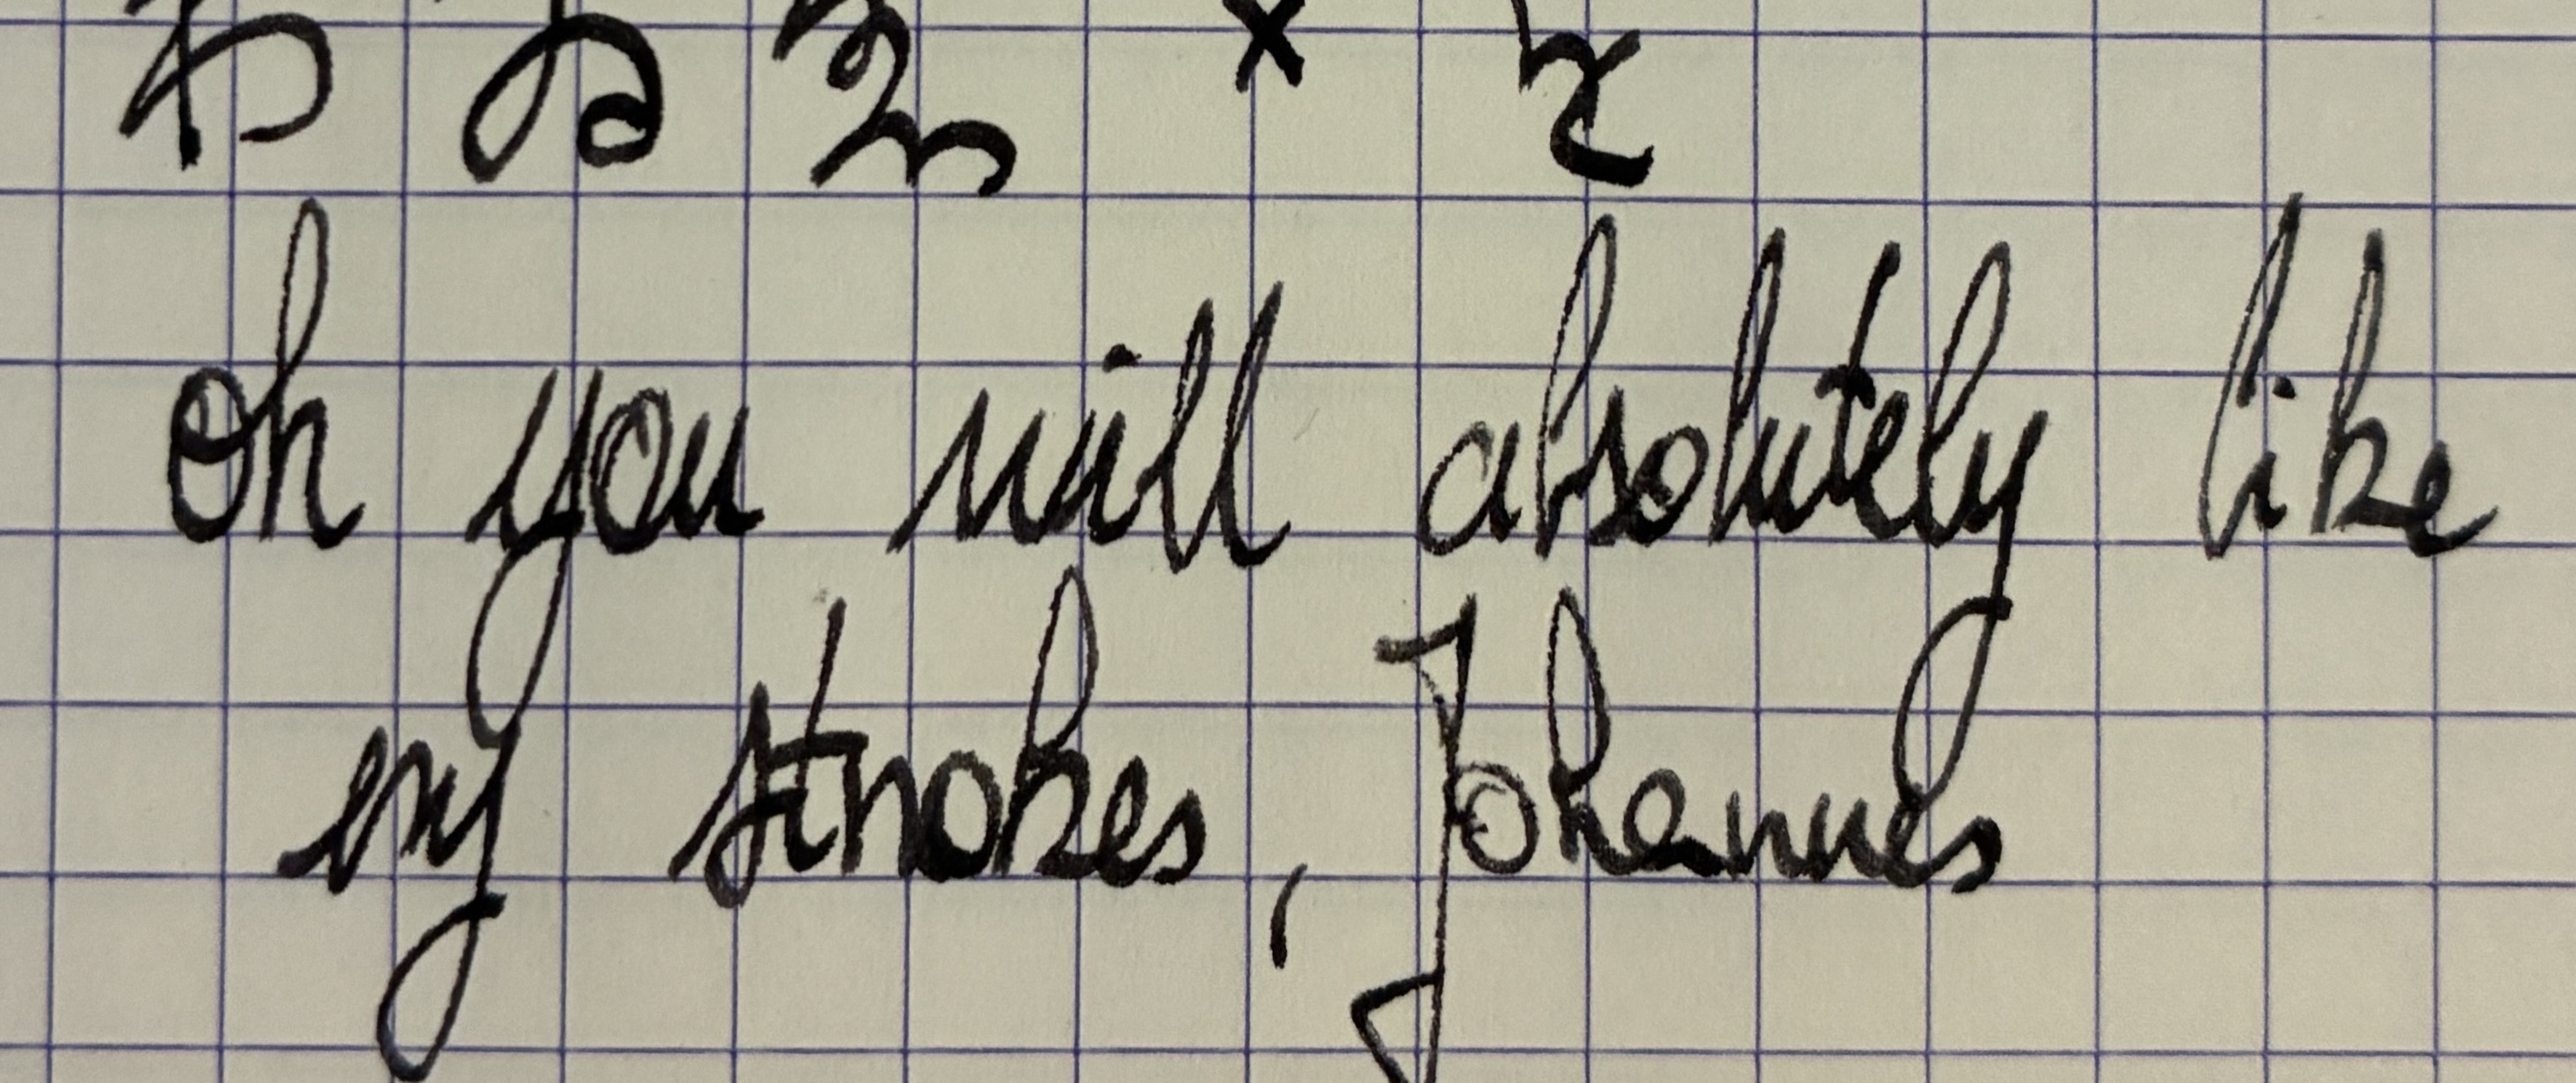 わ ゐ ゑ × を
oh you will absolutely like
my strokes, Johannes